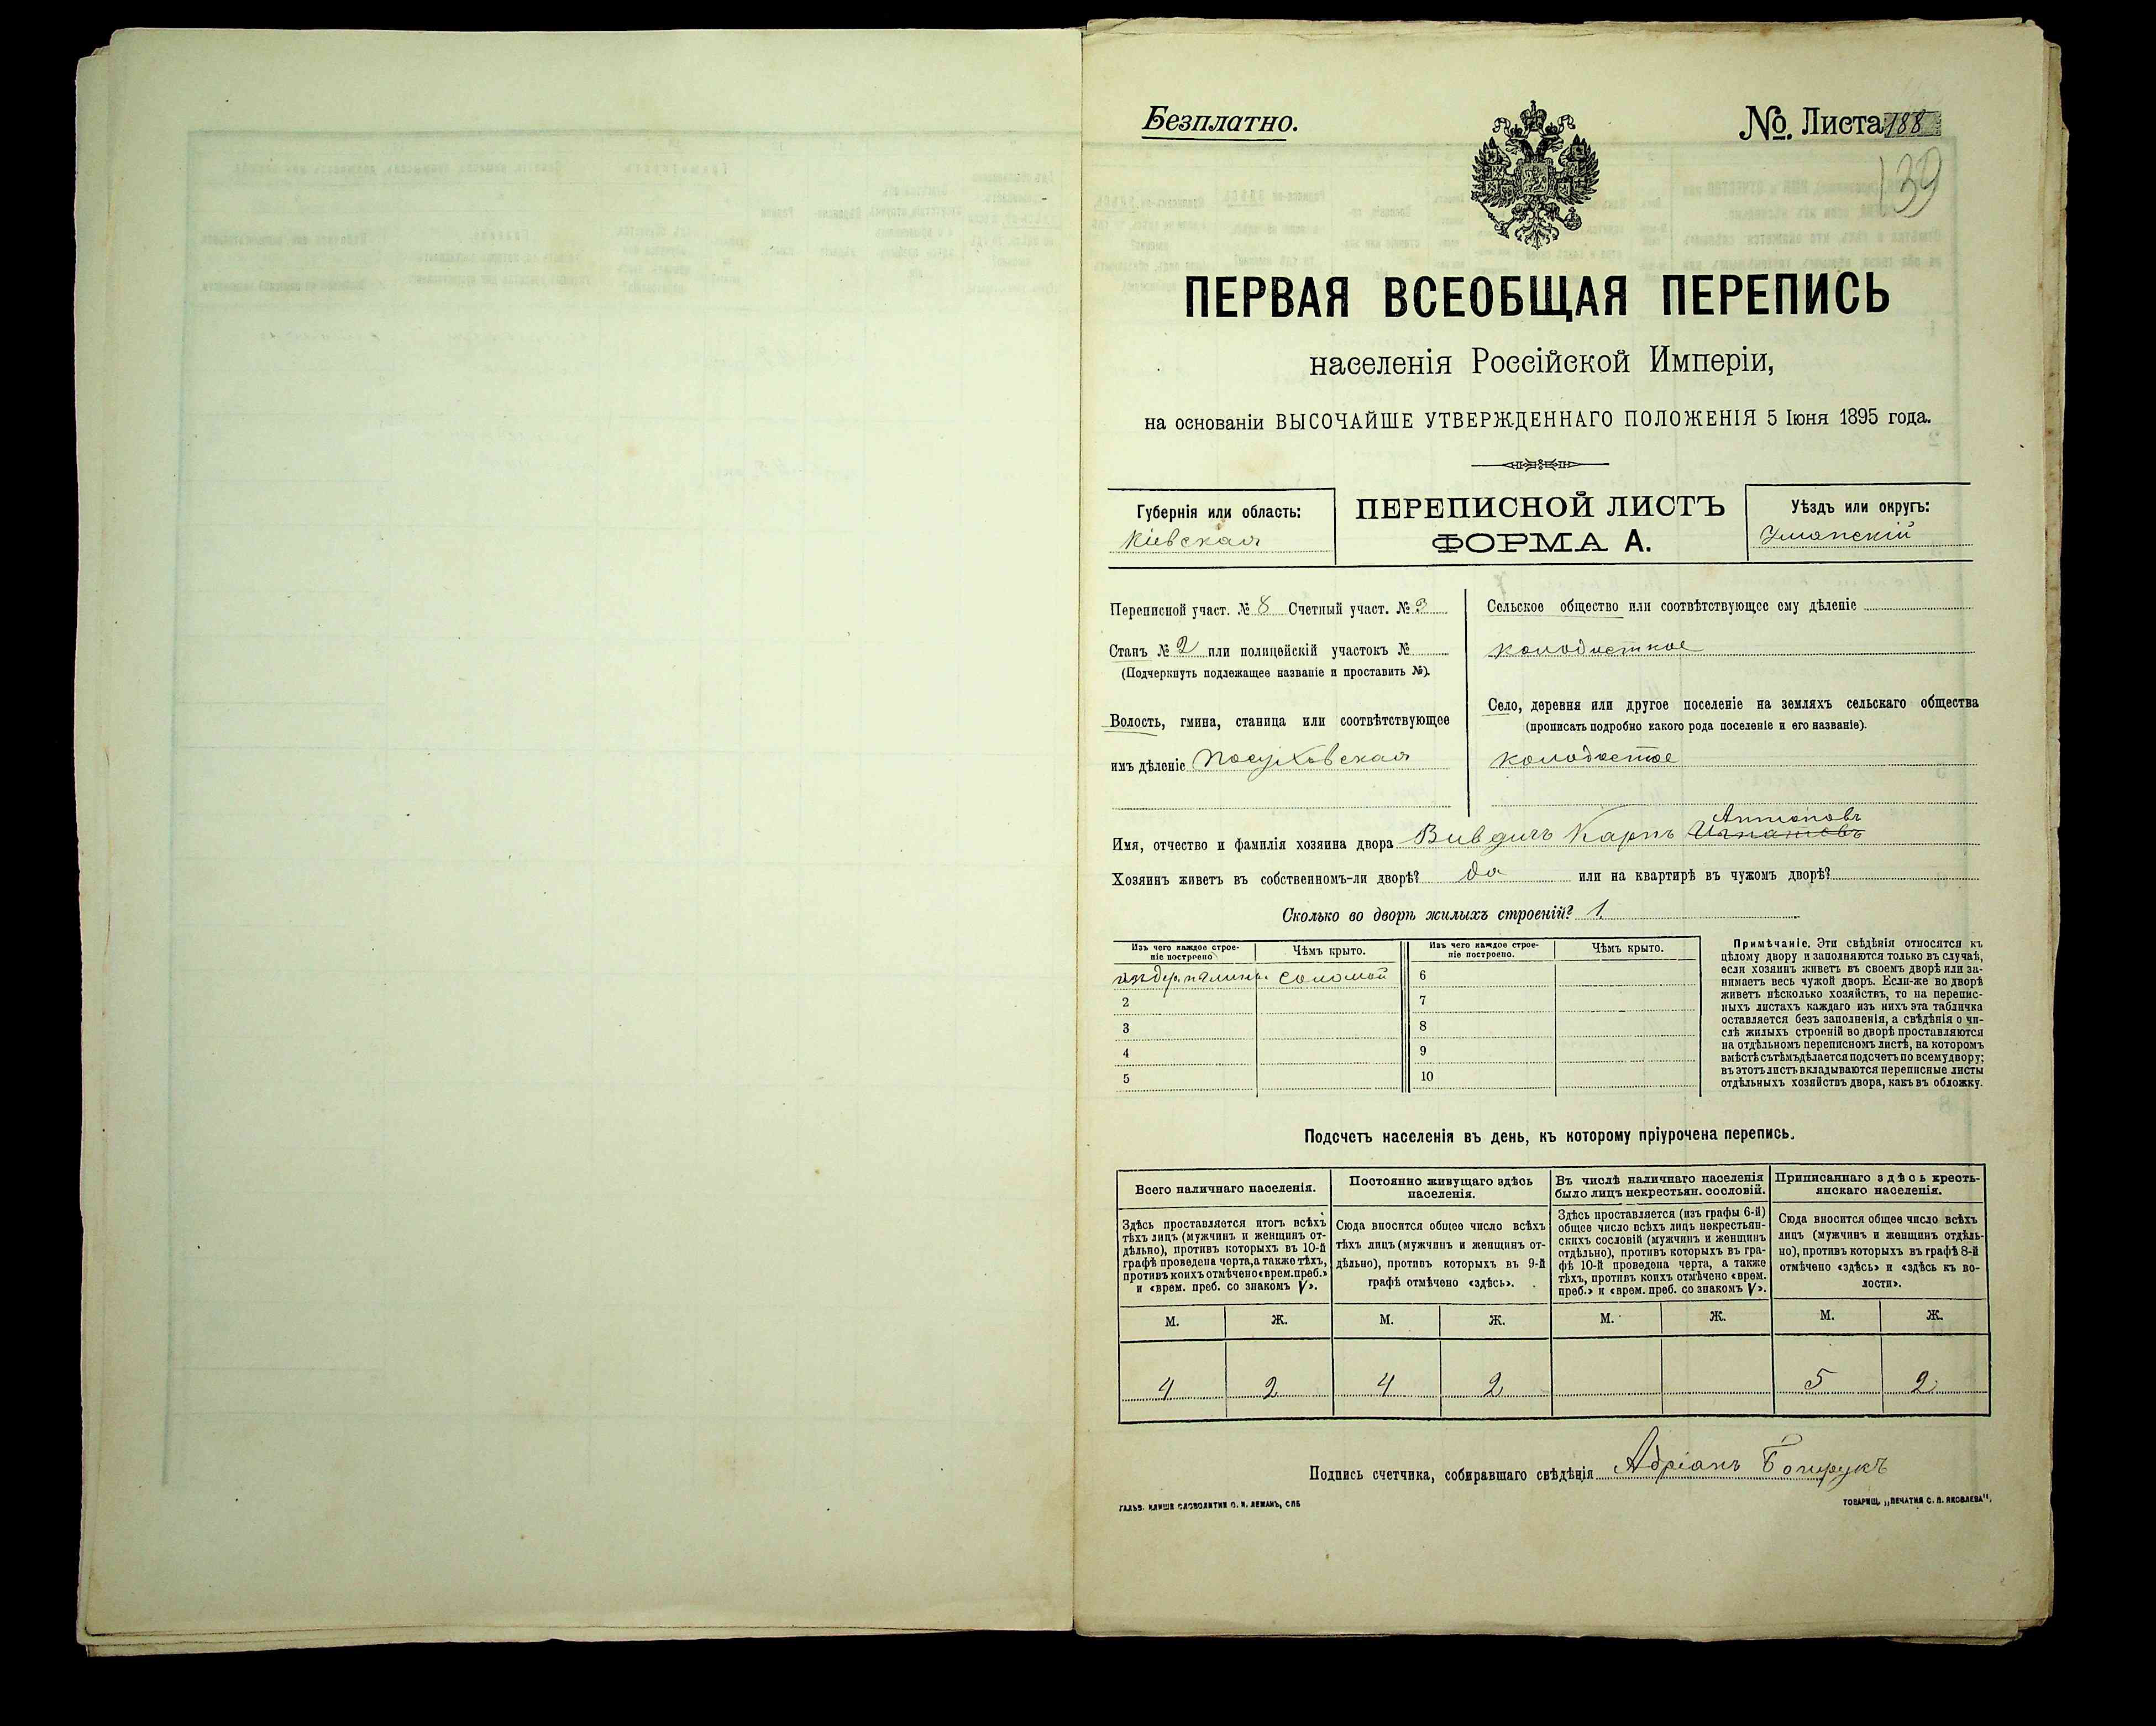 Безплатно.
No. Листа 188
139
ПЕРВАЯ ВСЕОБЩАЯ ПЕРЕПИСЬ
населенія Россійской Имперіи,
на основаніи ВЫСОЧАЙШЕ УТВЕРЖДЕННАГО ПОЛОЖЕНІЯ 5 Іюня 1895 года.
Губернія или область:
Кіевская
ПЕРЕПИСНОЙ ЛИСТЪ
ФОРМА А.
Уѣздъ или округъ:
Уманскій
Переписной участ. № 8 Счетный участ. № 3
Станъ № 2 или полицейскій участокъ №
(Подчеркнуть подлежащее названіе и проставить №).
Волость, гмина, станица или соотвѣтствующее
имъ дѣленіе Посуховская
Сельское общество или соотвѣтствующее ему дѣленіе
Колодистное
Село, деревня или другое поселеніе на земляхъ сельскаго общества
(прописать подробно какого рода поселеніе и его названіе).
Колодистое
Антоновъ
Имя, отчество и фамилія хозяина двора Вивдичъ Карпъ Игнатовъ
Хозяинъ живетъ въ собственномъ-ли дворѣ? да или на квартирѣ въ чужомъ дворѣ?
Сколько во дворѣ жилыхъ строеній? 1
Изъ чего каждое строе-
ніе построено
Чѣмъ крыто.
Изъ чего каждое строе-
ніе построено.
Чѣмъ крыто.
соломой 6
2 7
3 8
4 9
5 10
Примѣчаніе. Эти свѣдѣнія относятся къ
цѣлому двору и заполняются только въ случаѣ,
если хозяинъ живетъ въ своемъ дворѣ или за-
нимаетъ весь чужой дворъ. Если-же во дворѣ
живетъ нѣсколько хозяйствъ, то на перепис-
ныхъ листахъ каждаго изъ нихъ эта табличка
оставляется безъ заполненія, а свѣдѣнія о чи-
слѣ жилыхъ строеній во дворѣ проставляются
на отдѣльномъ переписномъ листѣ, на которомъ
вмѣстѣ съ тѣмъ дѣлается подсчетъ по всему двору;
въ этотъ листъ вкладываются переписные листы
отдѣльныхъ хозяйствъ двора, какъ въ обложку.
Подсчетъ населенія въ день, къ которому пріурочена перепись.
Всего наличнаго населенія.
Здѣсь проставляется итогъ всѣхъ
тѣхъ лицъ (мужчинъ и женщинъ от-
дѣльно), противъ которыхъ въ 10-й
графѣ проведена черта, а также тѣхъ,
противъ коихъ отмѣчено «врем. преб.»
и «врем. преб. со знакомъ V».
Постоянно живущаго здѣсь
населенія.
Сюда вносится общее число всѣхъ
тѣхъ лицъ (мужчинъ и женщинъ от-
дѣльно), противъ которыхъ въ 9-й
графѣ отмѣчено «здѣсь».
Въ числѣ наличнаго населенія
было лицъ некрестьян. сословій.
Здѣсь проставляется (изъ графы 6-й)
общее число всѣхъ лицъ некрестьян-
скихъ сословій (мужчинъ и женщинъ
отдѣльно), противъ которыхъ въ гра-
фѣ 10-й проведена черта, а также
тѣхъ, противъ коихъ отмѣчено «врем.
преб.» и «врем. преб. со знакомъ V».
Приписаннаго здѣсь кресть-
янскаго населенія.
Сюда вносится общее число всѣхъ
лицъ (мужчинъ и женщинъ отдѣль-
но), противъ которыхъ въ графѣ 8-й
отмѣчено «здѣсь» и «здѣсь къ во-
лости».
М. Ж. М. Ж. М. Ж. М. Ж.
4 2 4 2 5 2
Подпись счетчика, собиравшаго свѣдѣнія Адріанъ
ГАЛЬВ. КЛИШЕ СЛОВОЛИТНИ О. И. ЛЕМАНЪ, СПБ
ТОВАРИЩ. „ПЕЧАТНЯ С. П. ЯКОВЛЕВА".